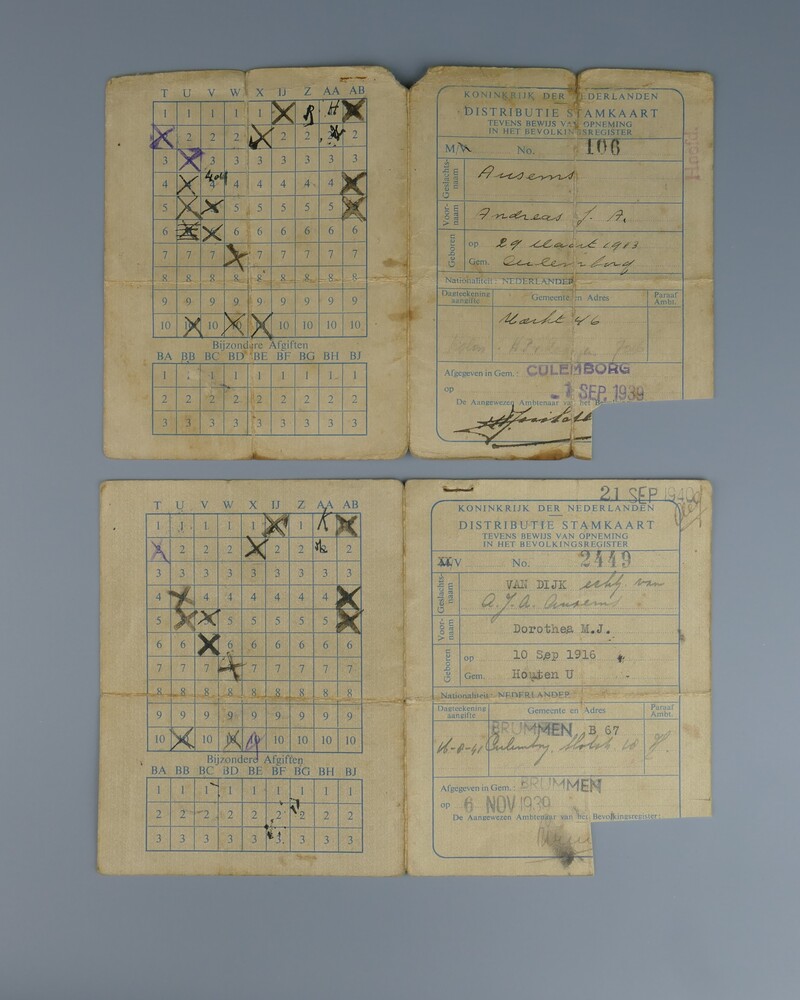 T U V W X IJ Z AA AB
1 1 1 1 1 1 R H 1
2 2 2 2 2 2 2 2
3 3 3 3 3 3 3 3 3
4 4 4 4 4 4 4 4 4
5 5 5 5 5 5 5 5 5
6 6 6 6 6 6 6 6 6
7 7 7 7 7 7 7 7 7
8 8 8 8 8 8 8 8 8
9 9 9 9 9 9 9 9 9
10 10 10 10 10 10 10 10 10
Bijzondere Afgiften
BA BB BC BD BE BF BG BH BJ
1 1 1 1 1 1 1 1 1
2 2 2 2 2 2 2 2 2
3 3 3 3 3 3 3 3 3
KONINKRIJK DER NEDERLANDEN
DISTRIBUTIE STAMKAART
TEVENS BEWIJS VAN OPNEMING
IN HET BEVOLKINGSREGISTER
M/V No. 106
Hoofd
Geslachts-
naam
Ausems
Voor-
naam
Andreas J. A.
Geboren
op 29 Maart 1913
Gem. Culemborg
Nationaliteit: NEDERLANDER
Dagteekening
aangifte
Gemeente en Adres
Paraaf
Ambt.
Markt 46
Afgegeven in Gem.: CULEMBORG
op - 1 SEP. 1939
De Aangewezen Ambtenaar van het
T U V W X IJ Z AA AB
1 1 1 1 1 1 1 K 1
2 2 2 2 2 2 2 2
3 3 3 3 3 3 3 3 3
4 4 4 4 4 4 4 4 4
5 5 5 5 5 5 5 5 5
6 6 6 6 6 6 6 6 6
7 7 7 7 7 7 7 7 7
8 8 8 8 8 8 8 8 8
9 9 9 9 9 9 9 9 9
10 10 10 10 10 10 10 10 10
Bijzondere Afgiften
BA BB BC BD BE BF BG BH BJ
1 1 1 1 1 1 1 1 1
2 2 2 2 2 2 2 2 2
3 3 3 3 3 3 3 3 3
21 SEP 1940
KONINKRIJK DER NEDERLANDEN
DISTRIBUTIE STAMKAART
TEVENS BEWIJS VAN OPNEMING
IN HET BEVOLKINGSREGISTER
M/V No. 2449
Geslachts-
naam
VAN DIJK echtg van
A. J. A. Ausems
Voor-
naam
Dorothea M.J.
Geboren
op 10 Sep 1916
Gem. Houten U
Nationaliteit NEDERLANDER
Dagteekening
aangifte
Gemeente en Adres
Paraaf
Ambt.
BRUMMEN, B 67
Culemborg,
Afgegeven in Gem.: BRUMMEN
op 6 NOV 1939
De Aangewezen Ambtenaar van het Bevolkingsregister: